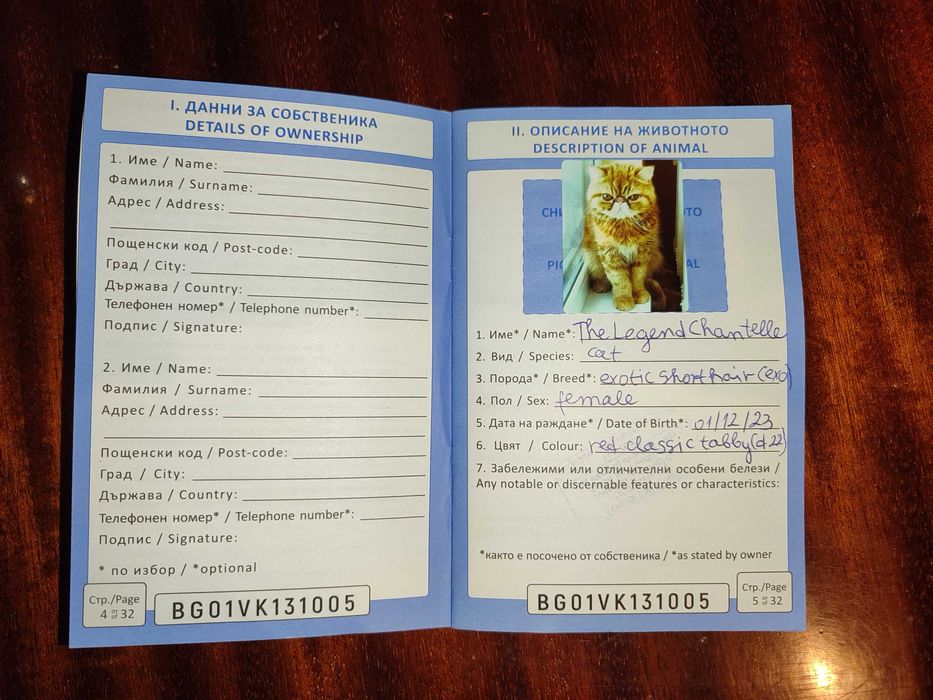 I. ДАННИ ЗА СОБСТВЕНИКА
DETAILS OF OWNERSHIP
1. Име / Name:
Фамилия / Surname:
Адрес / Address:
Пощенски код / Post-code:
Град / City:
Държава / Country:
Телефонен номер* / Telephone number*:
Подпис / Signature:
2. Име / Name:
Фамилия / Surname:
Адрес / Address:
Пощенски код / Post-code:
Град / City:
Държава / Country:
Телефонен номер* / Telephone number*:
Подпис / Signature:
* по избор / *optional
Стр./Page
4 от/of 32
BG01VK131005
II. ОПИСАНИЕ НА ЖИВОТНОТО
DESCRIPTION OF ANIMAL
1. Име* / Name*: The Legend Chantelle
2. Вид / Species: cat
3. Порода* / Breed*: exotic shorthair (exo)
4. Пол / Sex: female
5. Дата на раждане* / Date of Birth*: 01/12/23
6. Цвят / Colour: red classic tabby (d22)
7. Забележими или отличителни особени белези /
Any notable or discernable features or characteristics:
*както е посочено от собственика / *as stated by owner
BG01VK131005
Стр./Page
5 от/of 32